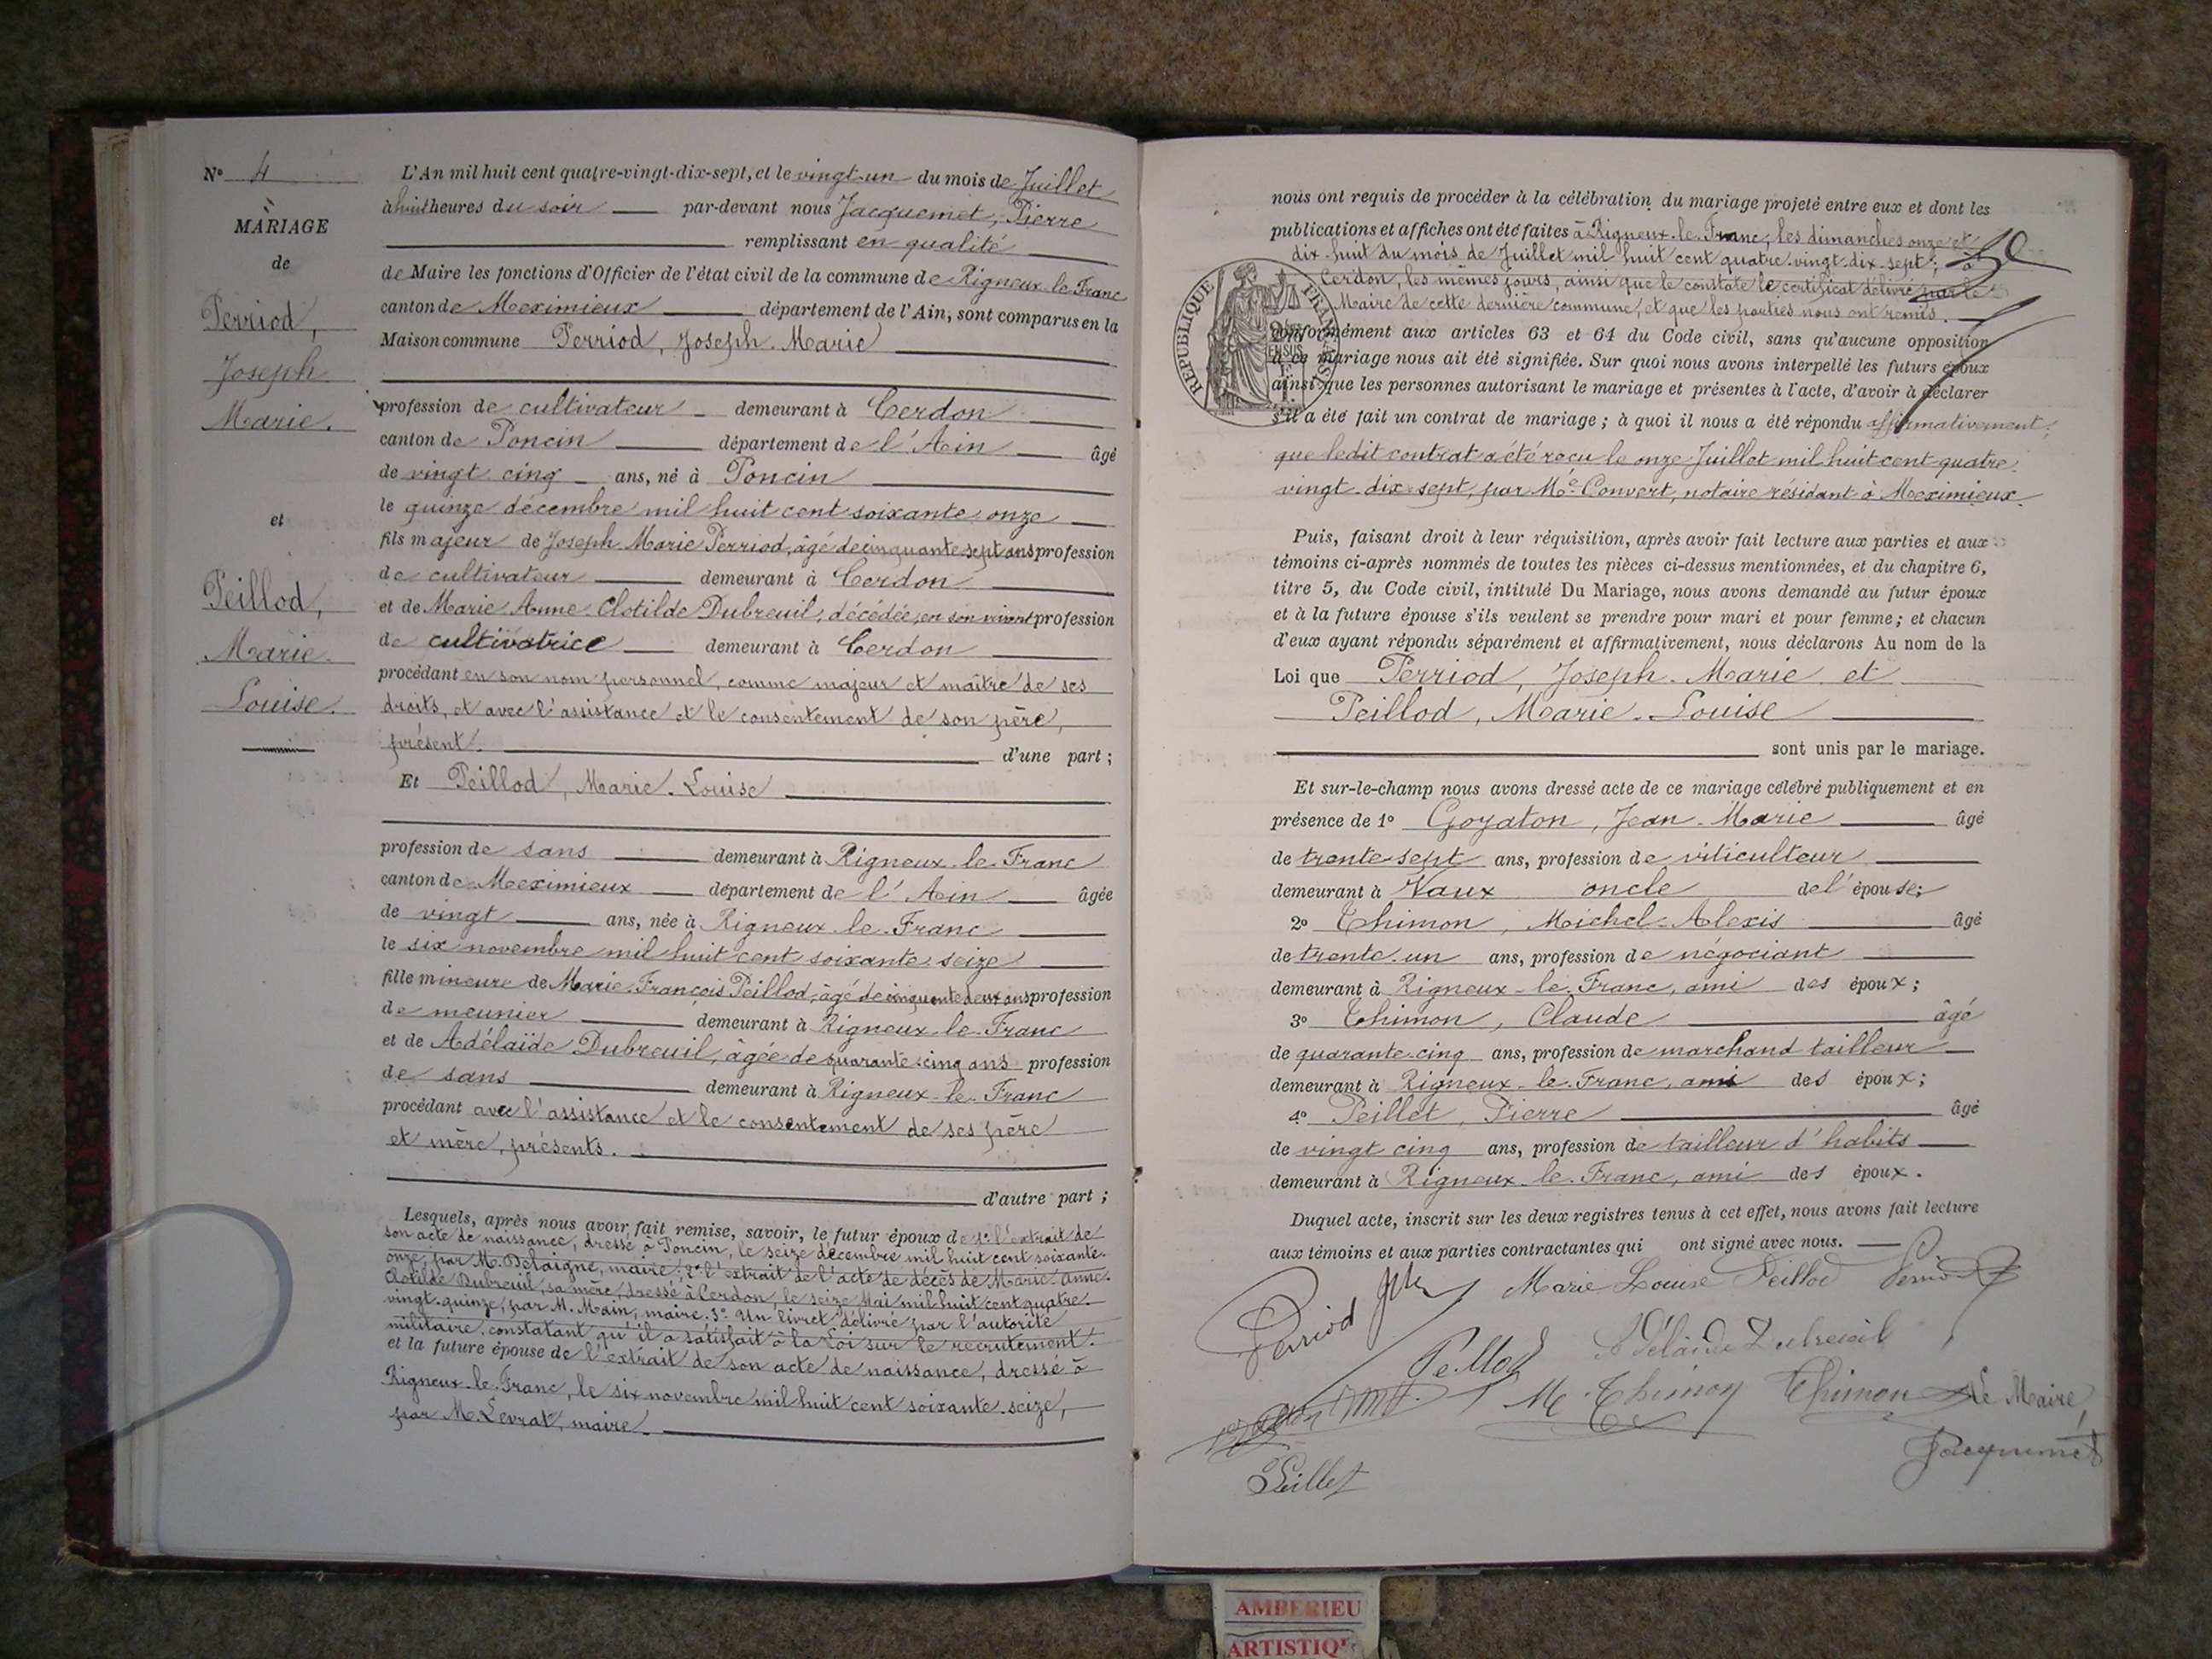 N° 4
MARIAGE
de
Perriod,
Joseph
Marie.
et
Peillod,
Marie
Louise.
L'An mil huit cent quatre-vingt-dix-sept, et le vingt-un du mois de Juillet
à huit heures du soir par-devant nous Jacquemet, Pierre
remplissant en qualité
de Maire les fonctions d'Officier de l'état civil de la commune de Rigneux-le-Franc
canton de Meximieux département de l'Ain, sont comparus en la
Maison commune Perriod, Joseph-Marie
profession de cultivateur demeurant à Cerdon
canton de Poncin département de l'Ain âgé
de vingt-cinq ans, né à Poncin
le quinze décembre mil huit cent soixante-onze
fils majeur de Joseph Marie Perriod, âgé de cinquante sept ans profession
de cultivateur demeurant à Cerdon
et de Marie Anne Clotilde Dubreuil, décédée, en son vivant profession
de cultivatrice demeurant à Cerdon
procédant en son nom personnel, comme majeur et maître de ses
droits, et avec l'assistance et le consentement de son père,
présent. d'une part;
Et Peillod, Marie-Louise
profession de sans demeurant à Rigneux-le-Franc
canton de Meximieux département de l'Ain âgée
de vingt ans, née à Rigneux-le-Franc
le six novembre mil huit cent soixante-seize
fille mineure de Marie-François Peillod, âgé de cinquante deux ans profession
de meunier demeurant à Rigneux-le-Franc
et de Adélaïde Dubreuil, âgée de quarante-cinq ans profession
de sans demeurant à Rigneux-le-Franc
procédant avec l'assistance et le consentement de ses père
et mère, présents.
d'autre part;
Lesquels, après nous avoir fait remise, savoir, le futur époux de 1° l'extrait de
son acte de naissance, dressé à Poncin, le seize décembre mil huit cent soixante-
onze, par M. Delaigne, maire; 2° l'extrait de l'acte de décès de Marie-Anne-
Clotilde Dubreuil, sa mère, dressé à Cerdon, le seize Mai mil huit cent quatre-
vingt-quinze, par M. Main, maire. 3° Un livret délivré par l'autorité
militaire constatant qu'il a satisfait à la Loi sur le recrutement.
et la future épouse de l'extrait de son acte de naissance, dressé à
Rigneux-le-Franc, le six novembre mil huit cent soixante-seize,
par M. Levrat, maire.
nous ont requis de procéder à la célébration du mariage projeté entre eux et dont les
publications et affiches ont été faites à Rigneux-le-Franc, les dimanches onze et
dix-huit du mois de Juillet mil huit cent quatre-vingt-dix-sept; à
Cerdon, les mêmes jours, ainsi que le constate le certificat délivré par le
Maire de cette dernière commune, et que les parties nous ont remis.
RÉPUBLIQUE FRANÇAISE
conformément aux articles 63 et 64 du Code civil, sans qu'aucune opposition
à ce mariage nous ait été signifiée. Sur quoi nous avons interpellé les futurs époux
ainsi que les personnes autorisant le mariage et présentes à l'acte, d'avoir à déclarer
s'il a été fait un contrat de mariage; à quoi il nous a été répondu affirmativement;
que ledit contrat a été reçu le onze Juillet mil huit cent quatre-
vingt-dix-sept, par Me Convert, notaire résidant à Meximieux.
Puis, faisant droit à leur réquisition, après avoir fait lecture aux parties et aux
témoins ci-après nommés de toutes les pièces ci-dessus mentionnées, et du chapitre 6,
titre 5, du Code civil, intitulé Du Mariage, nous avons demandé au futur époux
et à la future épouse s'ils veulent se prendre pour mari et pour femme; et chacun
d'eux ayant répondu séparément et affirmativement, nous déclarons Au nom de la
Loi que Perriod, Joseph-Marie et
Peillod, Marie-Louise
sont unis par le mariage.
Et sur-le-champ nous avons dressé acte de ce mariage célébré publiquement et en
présence de 1° Goyaton, Jean-Marie âgé
de trente-sept ans, profession de viticulteur
demeurant à Vaux oncle de l'épouse;
2° Thimon, Michel-Alexis âgé
de trente-un ans, profession de négociant
demeurant à Rigneux-le-Franc, ami des époux;
3° Thimon, Claude âgé
de quarante-cinq ans, profession de marchand tailleur
demeurant à Rigneux-le-Franc, ami des époux;
4° Peillet, Pierre âgé
de vingt cinq ans, profession de tailleur d'habits
demeurant à Rigneux-le-Franc, ami des époux.
Duquel acte, inscrit sur les deux registres tenus à cet effet, nous avons fait lecture
aux témoins et aux parties contractantes qui ont signé avec nous.
Perriod Marie Louise Peillod
Peillod Adélaïde Dubreuil
M Thimon Thimon Le Maire,
Jacquemet
Peillet
AMBERIEU
ARTISTIQUE